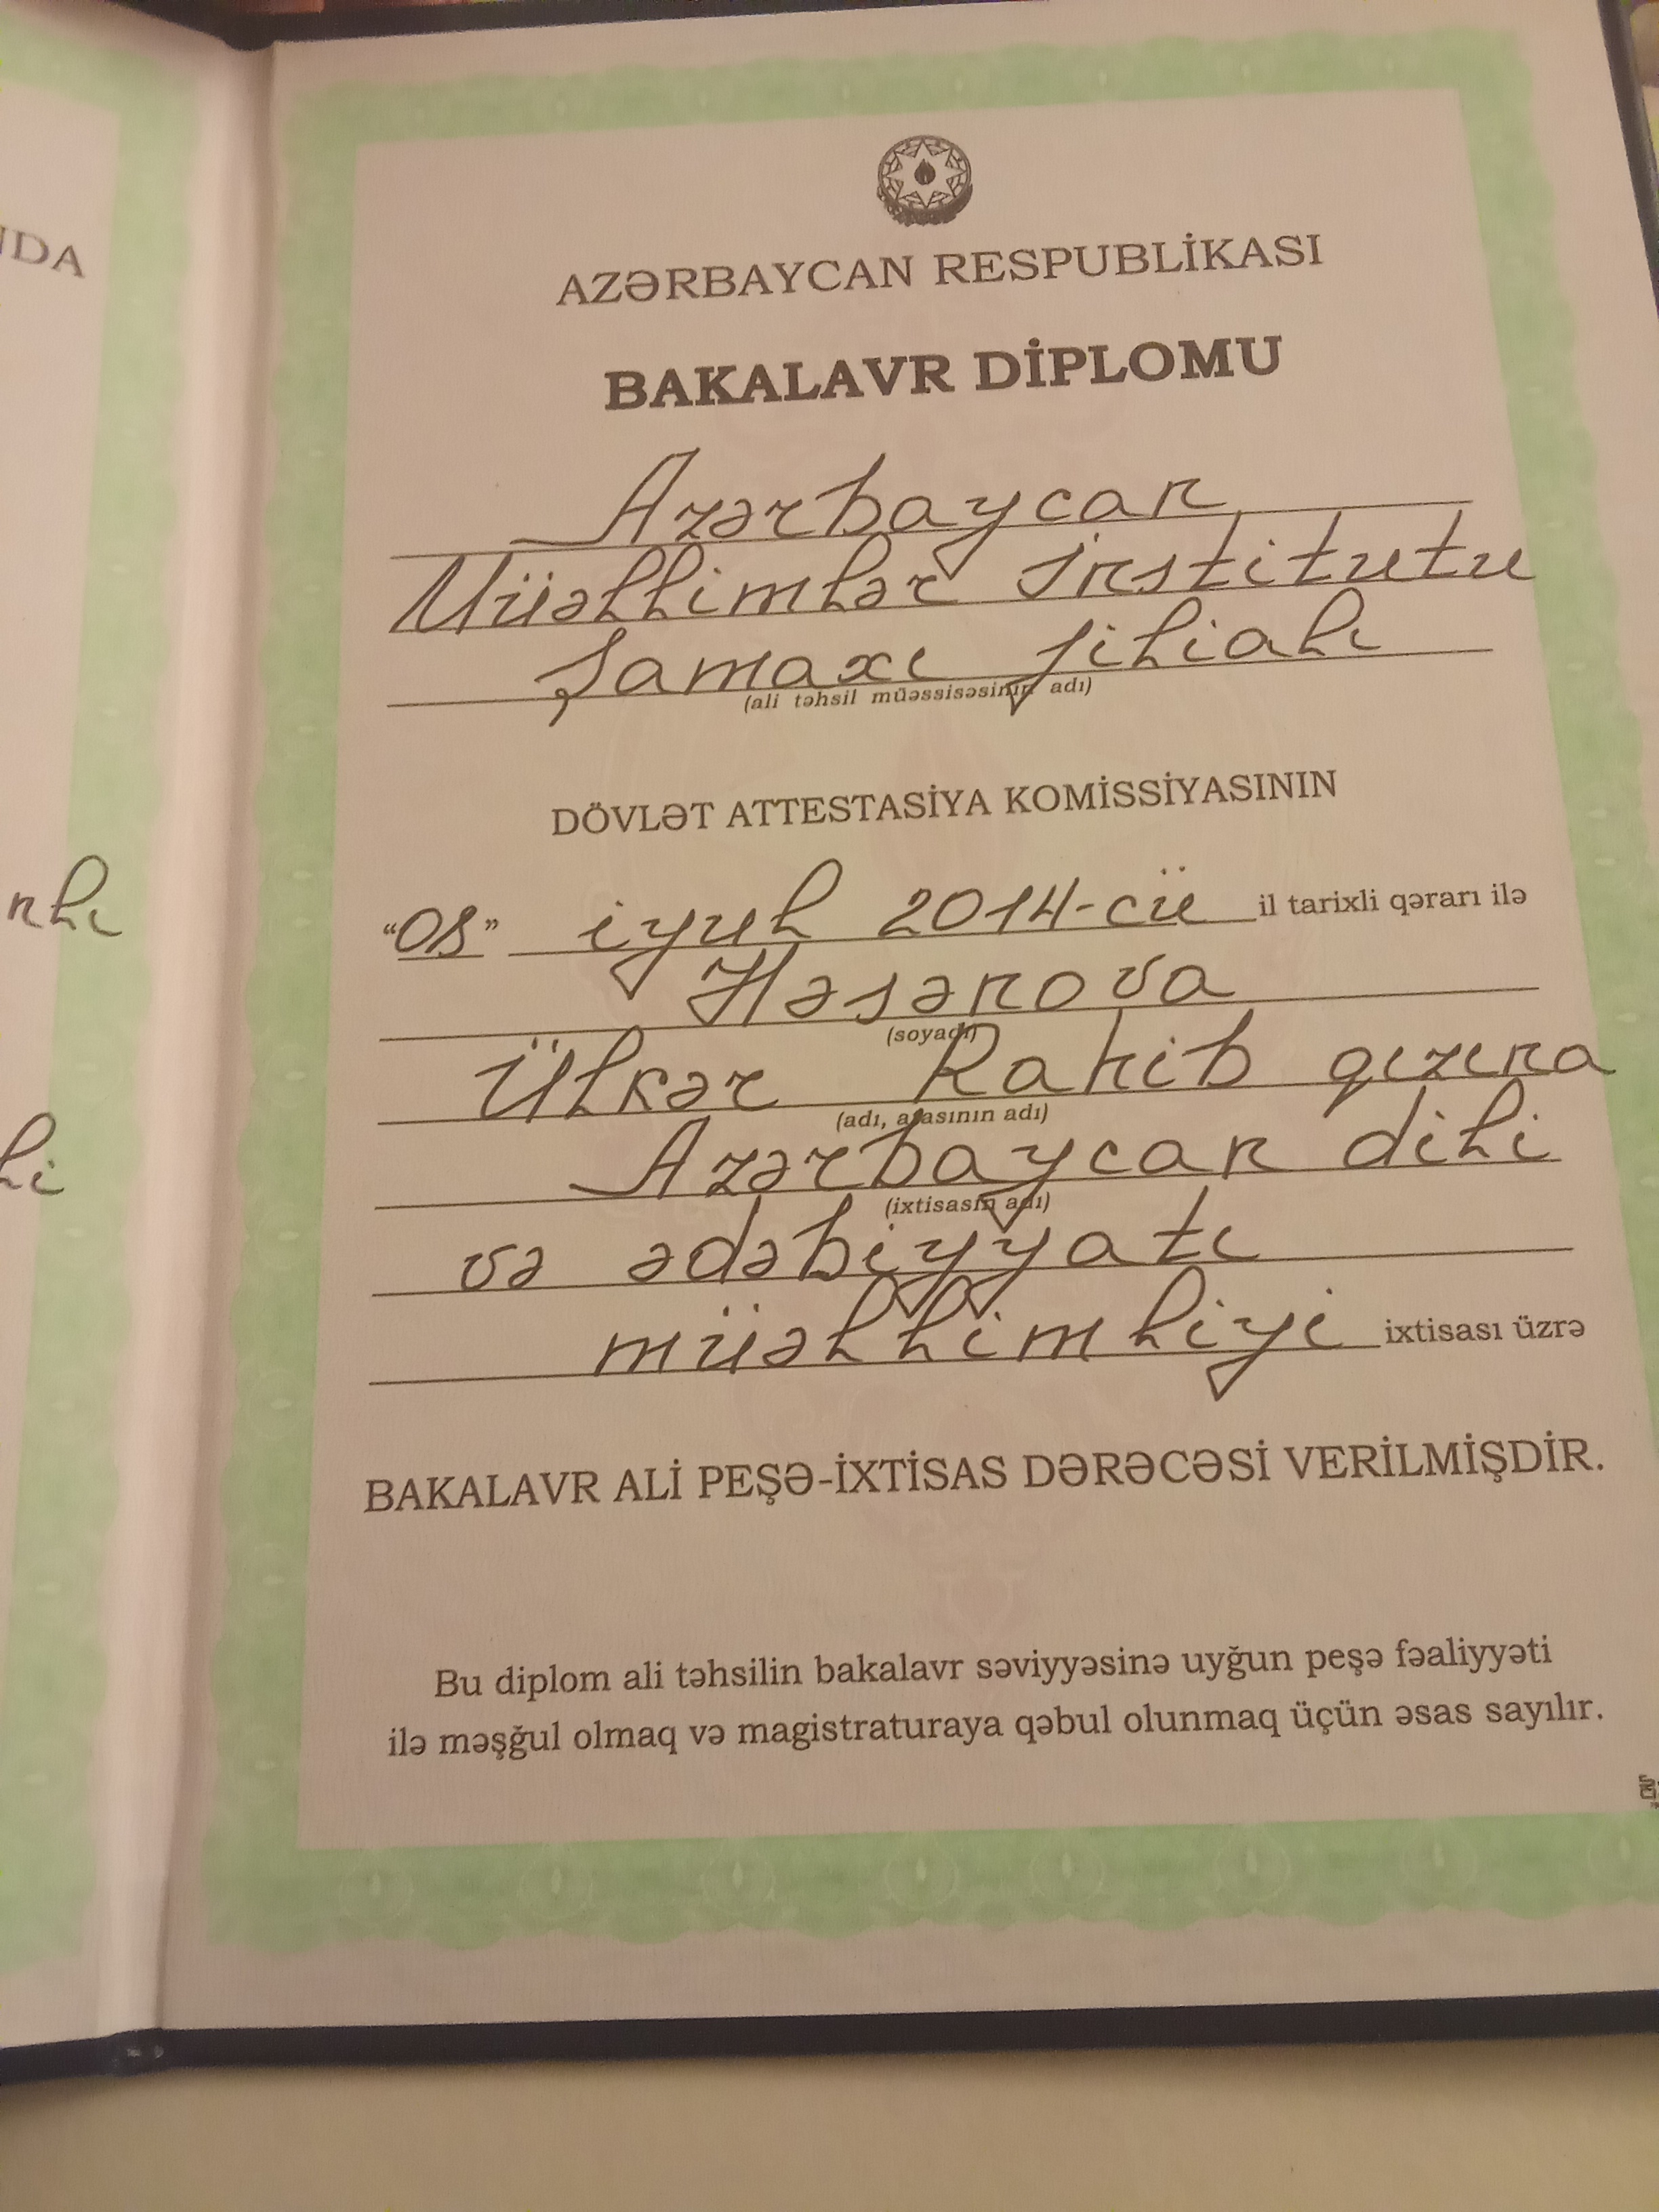 NDA
nlı
li
AZƏRBAYCAN RESPUBLİKASI
BAKALAVR DİPLOMU
Azərbaycan
Müəllimlər İnstitutu
Şamaxı filialı
(ali təhsil müəssisəsinin adı)
DÖVLƏT ATTESTASİYA KOMİSSİYASININ
"08" iyul 2014-cü il tarixli qərarı ilə
Həsənova
(soyadı)
Ülkər Rakib qızına
(adı, atasının adı)
Azərbaycan dili
(ixtisasın adı)
və ədəbiyyatı
müəllimliyi ixtisası üzrə
BAKALAVR ALİ PEŞƏ-İXTİSAS DƏRƏCƏSİ VERİLMİŞDİR.
Bu diplom ali təhsilin bakalavr səviyyəsinə uyğun peşə fəaliyyəti
ilə məşğul olmaq və magistraturaya qəbul olunmaq üçün əsas sayılır.